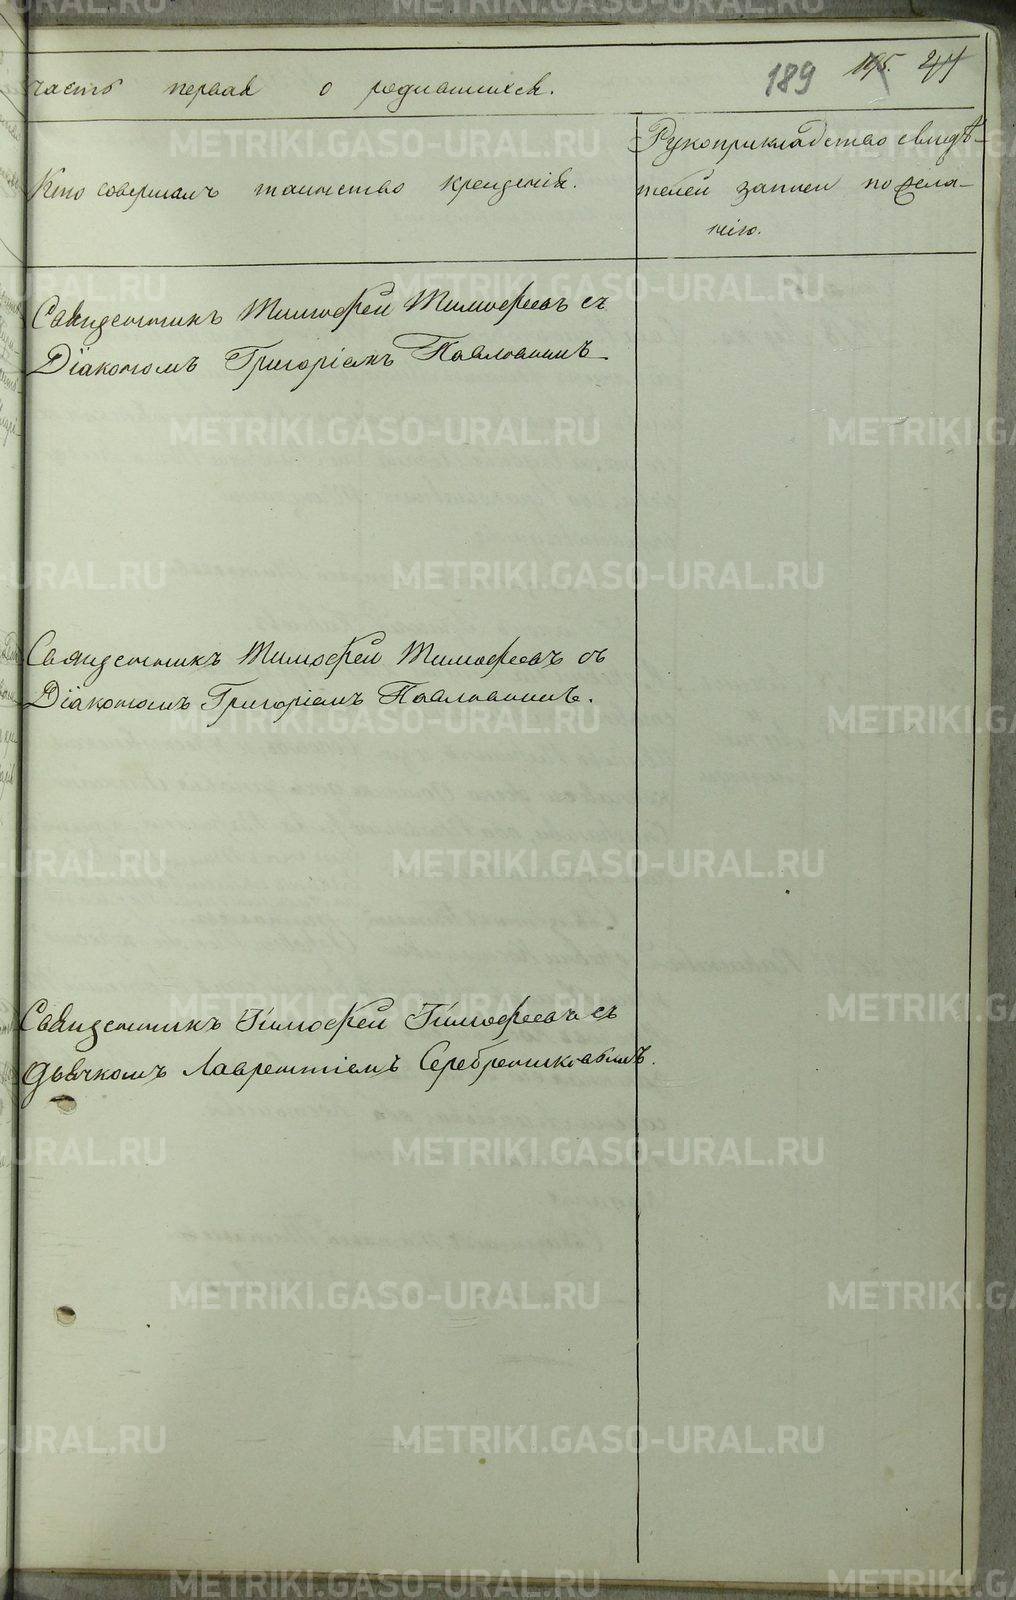 189 195. 44
часть первая о родившихся.
Кто совершалъ таинство крещенія.
Рукоприкладство свидѣ-
телей записи по жела-
нію.
Священникъ Тимофей Тимофеевъ съ
Діакономъ Григоріемъ Павловымъ
Священникъ Тимофей Тимофеевъ съ
Діакономъ Григоріемъ Павловымъ.
Священникъ Тимофей Тимофеевъ съ
дьячкомъ Лаврентіемъ Серебренниковымъ.
METRIKI.GASO-URAL.RU